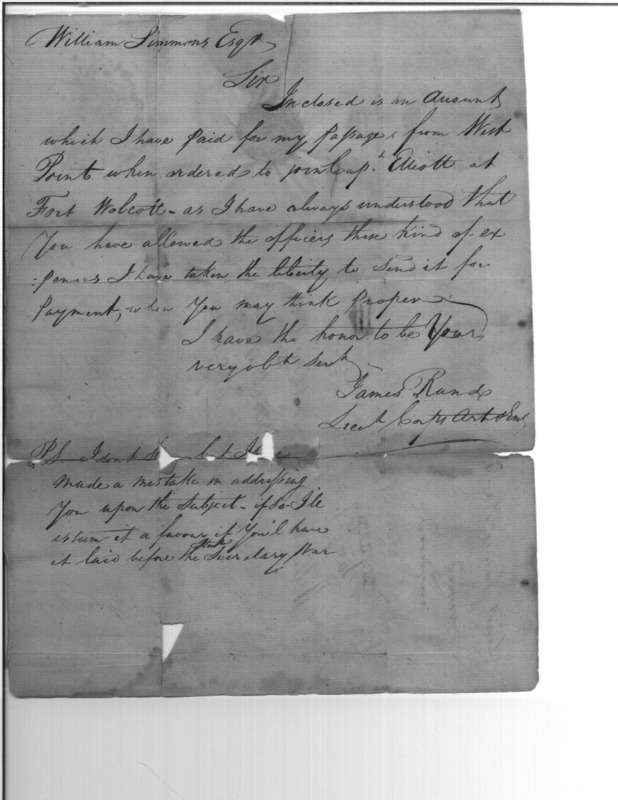 William Simmons Esqr
Sir
Inclosed is an Account
which I have paid for my passage from West
Point when ordered to join Capt. Elliott at
Fort Wolcott - as I have always understood that
You have allowed the officers these kind of ex
-pences I have taken the liberty to send it for
Payment, when You may think proper
I have the honor to be Your
very obt Servt
James Rand
Lieut Corps Art & Eng
PS I dont
made a mistake in addressing
You upon the subject - if so I'le
esteem it a favour if You'l have
it laid before the Secretary War